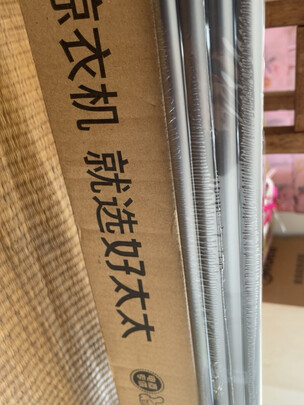 衣机 就选好太太